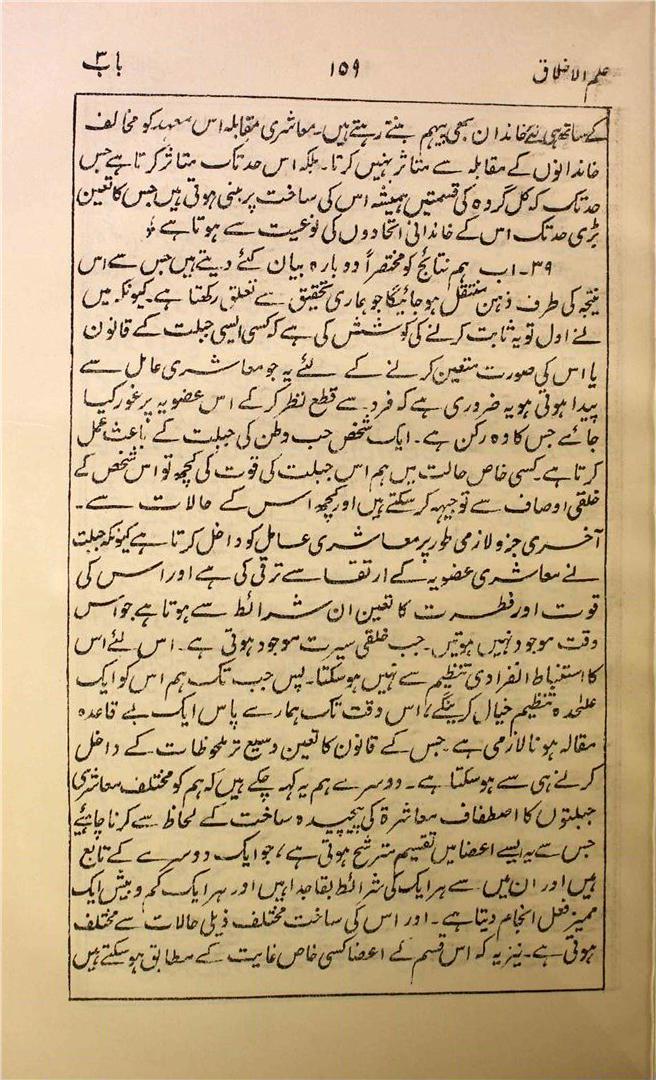 علم الاخلاق ۱۵۹ باب ۳
کے ساتھ ہی نئے خاندان بھی پیہم بنتے رہتے ہیں۔ معاشری مقابلہ اس معہد کو مخالف
خاندانوں کے مقابلہ سے متاثر نہیں کرتا۔ بلکہ اس حد تک متاثر کرتا ہے جس
حد تک کہ کل گروہ کی قسمتیں ہمیشہ اس کی ساخت پر مبنی ہوتی ہیں جس کا تعین
بڑی حد تک اس کے خاندانی اتحادوں کی نوعیت سے ہوتا ہے؛
۳۹۔ اب ہم نتائج کو مختصراً دوبارہ بیان کئے دیتے ہیں جس سے اس
نتیجہ کی طرف ذہن منتقل ہو جائیگا جو ہماری تحقیق سے تعلق رکھتا ہے۔ کیونکہ میں
نے اول تو یہ ثابت کرنے کی کوشش کی ہے کہ کسی ایسی جبلت کے قانون
یا اس کی صورت متعین کرنے کے لئے یہ جو معاشری عامل سے
پیدا ہوتی ہو یہ ضروری ہے کہ فرد سے قطع نظر کر کے اس عضویہ پر غور کیا
جائے جس کا وہ رکن ہے۔ ایک شخص حب وطن کی جبلت کے باعث عمل
کرتا ہے۔ کسی خاص حالت میں ہم اس جبلت کی قوت کی کچھ تو اس شخص کے
خلقی اوصاف سے توجیہہ کر سکتے ہیں اور کچھ اس کے حالات سے۔
آخری جزو لازمی طور پر معاشری عامل کو داخل کرتا ہے کیونکہ جبلت
نے معاشری عضویہ کے ارتقا سے ترقی کی ہے اور اس کی
قوت اور فطرت کا تعین ان شرائط سے ہوتا ہے جو اس
وقت موجود نہیں ہوتیں۔ جب خلقی سیرت موجود ہوتی ہے۔ اس لئے اس
کا استنباط انفرادی تنظیم سے نہیں ہو سکتا۔ پس جب تک ہم اس کو ایک
علٰحدہ تنظیم خیال کرینگے، اس وقت تک ہمارے پاس ایک بے قاعدہ
مقالہ ہونا لازمی ہے۔ جس کے قانون کا تعین وسیع تر ملحوظات کے داخل
کرنے ہی سے ہو سکتا ہے۔ دوسرے ہم یہ کہہ چکے ہیں کہ ہم کو مختلف معاشری
جبلتوں کا اصطفاف معاشرۃ کی پیچیدہ ساخت کے لحاظ سے کرنا چاہیئے
جس سے یہ ایسے اعضا میں تقسیم مترشح ہوتی ہے، جو ایک دوسرے کے تابع
ہیں اور ان میں سے ہر ایک کی شرائط بقا جدا ہیں اور ہر ایک کم و بیش ایک
ممیز فعل انجام دیتا ہے۔ اور اس کی ساخت مختلف ذیلی حالات سے مختلف
ہوتی ہے۔ نیز یہ کہ اس قسم کے اعضا کسی خاص غایت کے مطابق ہو سکتے ہیں